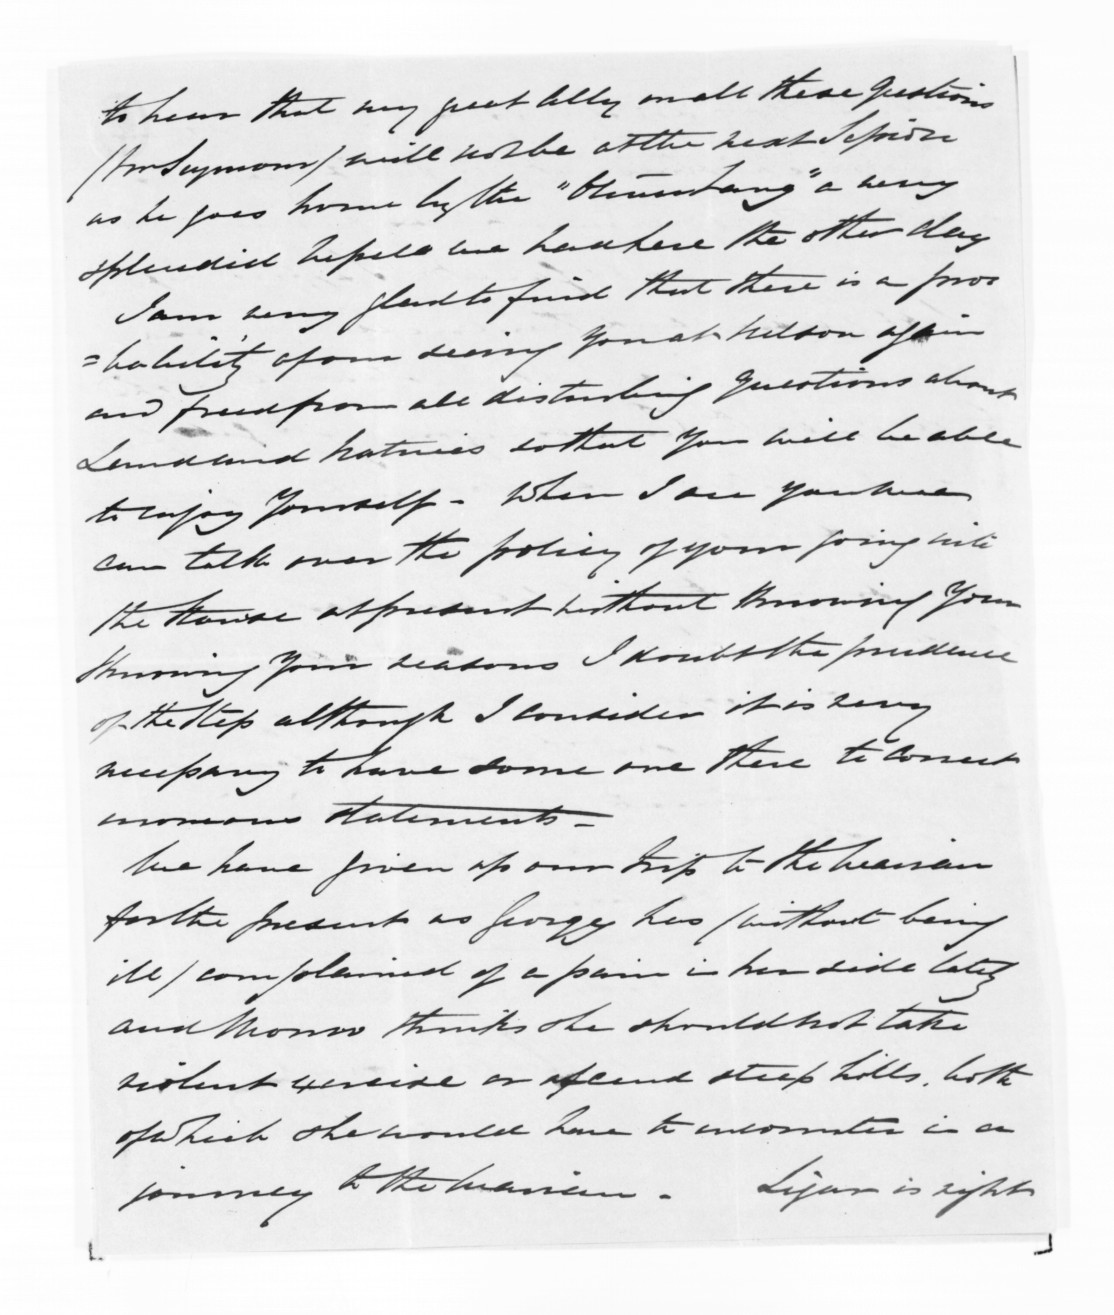 to hear that my great Ally on all these questions
(Mr Seymour) will not be at the next Session
as he goes home by the " " a very
splendid vessel we had here the other day
I am very glad to find that there is a pro
=bability of our seeing you at Nelson again
and freed from all disturbing questions about
Land and Natives so that you will be able
to enjoy Yourself - When I see you we
can talk over the policy of your going into
the House at present without knowing Your
Knowing Your reasons I doubt the prudence
of the Step although I consider it is very
necessary to have some one there to correct
erroneous statements -
We have given up our trip to the Wairau
for the present as Georgy has (without being
ill) complained of a pain in her side lately
and Monro thinks she should not take
violent exercise or ascend steep hills, both
of which she would have to encounter in a
journey to the Wairau - Ligar is right